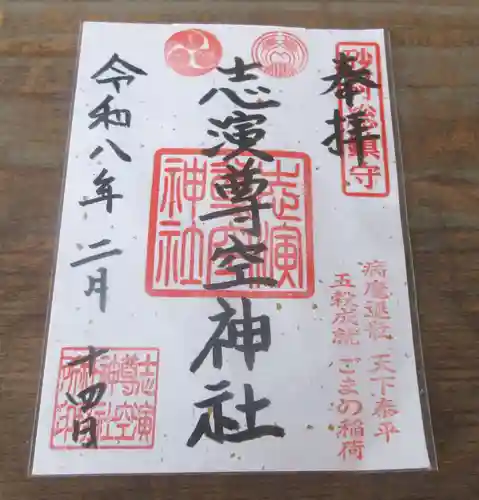 奉拝
砂村総鎮守
病魔退散 天下泰平
五穀成就 ごまの稲荷
志演尊空神社
志演尊空神社
令和八年 二月
十四日
志演
尊空
神社